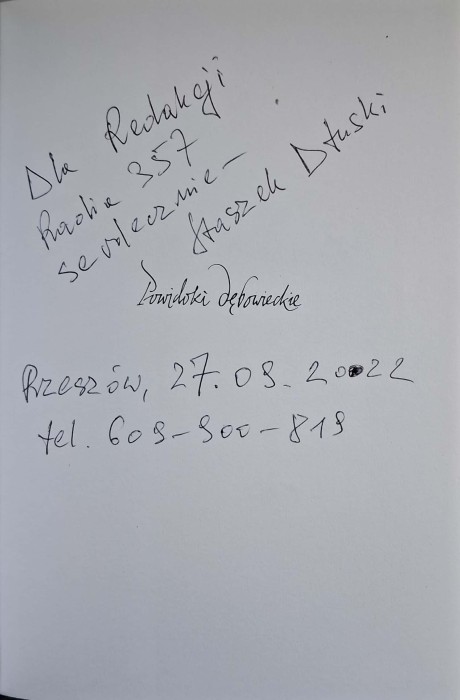 Dla Redakcji
Radia 357
serdecznie –
Staszek Dłuski
Powidoki Dębowieckie
Rzeszów, 27.09.2022
tel. 609-900-819